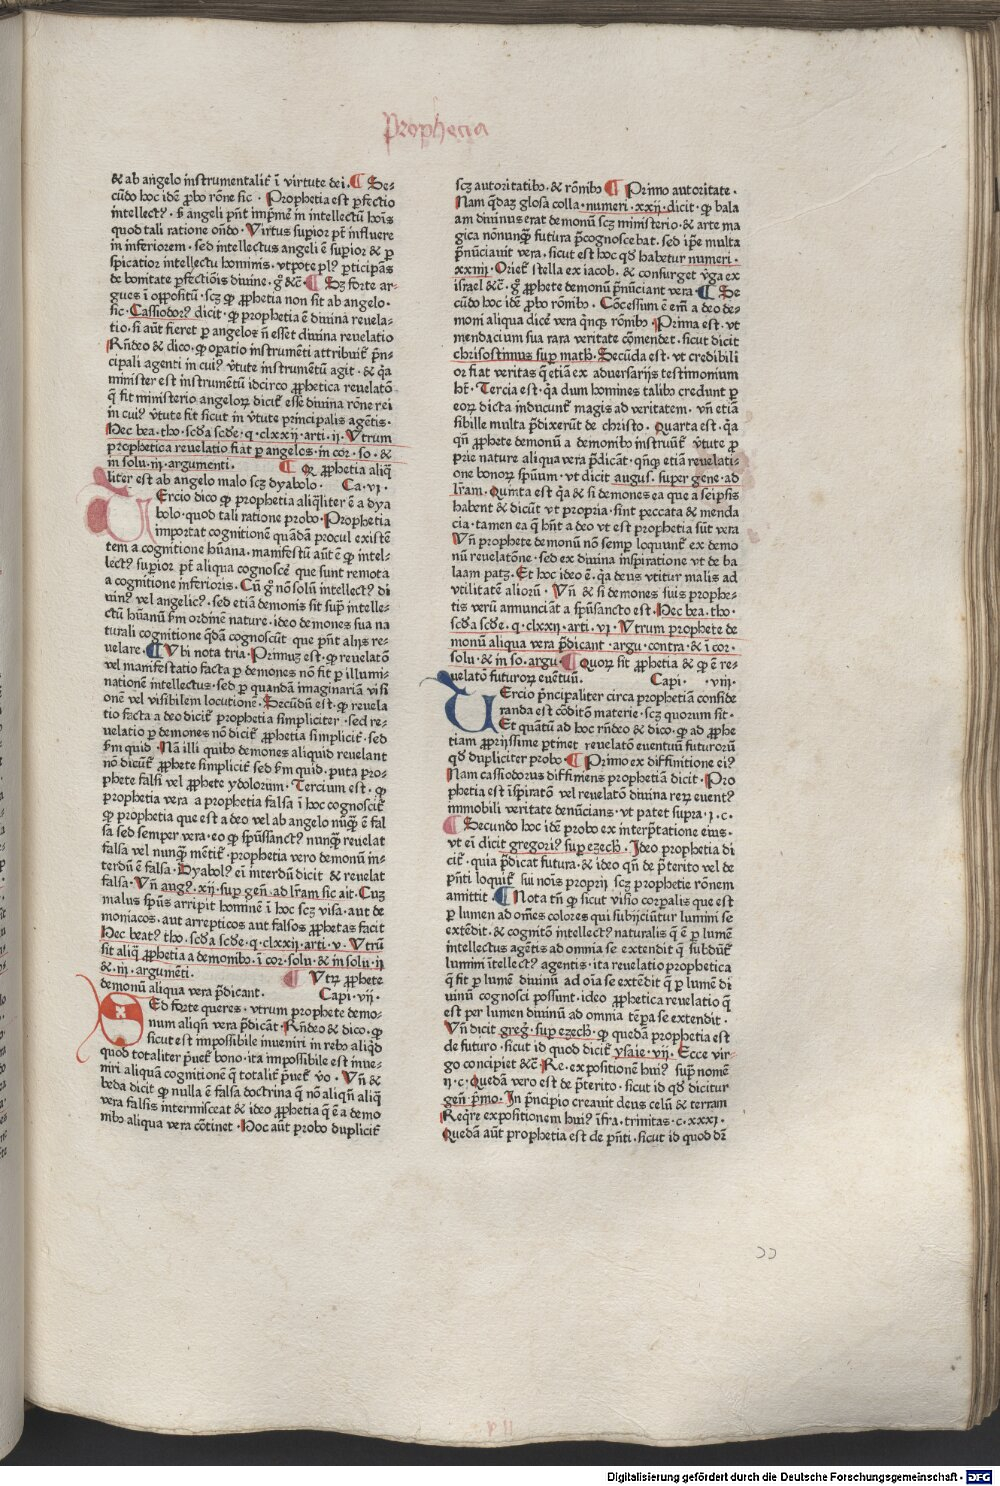 Prophetia
& ab angelo instrumentalit̃ ĩ virtute dei. Se-
cũdo hoc idẽ ꝓbo rõne sic. Prophetia est ꝑfectio
intellectꝰ. s̃ angeli pñt imp̃mẽ in intellectũ hoĩs
quod tali ratione oñdo. Virtus supior pt̃ influere
in inferiorem. sed intellectus angeli ẽ supior & ꝑ
spicatior intellectu hominis. vtpote plꝰ ꝑticipãs
de bonitate ꝑfectiõis divine. g̃ &c̃. Sꝫ forte ar-
gues ĩ oppositũ. scꝫ ꝙ ꝓphetia non sit ab angelo.
sic. Cassiodorꝰ dicit ꝙ prophetia ẽ divina revela-
tio. si aũt fieret ꝑ angelos ñ esset divina revelatio
Rñdeo & dico. ꝙ opatio instrumẽti attribuit̃ p̃n-
cipali agenti in cuiꝰ ṽtute instrumẽtũ agit. & q̃a
minister est instrumẽtũ idcirco ꝓphetica revelatõ
q̃ fit ministerio angeloꝝ dicit̃ esse divina rõne rei
in cuiꝰ ṽtute fit sicut in ṽtute principalis agẽtis.
Hec bea. tho. scďa scďe. q. clxxij. arti. ij. Vtrum
prophetica revelatio fiat ꝑ angelos. in cor. so. &
in solu. iij. argumenti. Qꝛ ꝓphetia aliq̃
liter est ab angelo malo scꝫ dyabolo. Ca. vi.
Tercio dico ꝙ prophetia aliq̃liter ẽ a dya
bolo. quod tali ratione probo. Prophetia
importat cognitionẽ quãdã procul existẽ
tem a cognitione hũana. manifestũ aũt ẽ ꝙ intel-
lectꝰ supior pt̃ aliqua cognoscẽ que sunt remota
a cognitione inferioris. Cũ g̃ nõ solũ intellectꝰ di
vinꝰ vel angelicꝰ. sed etiã demonis sit sup̃ intelle-
ctũ hũanũ s̃m ordinẽ nature. ideo demones sua na
turali cognitione q̃dã cognoscũt que pñt alijs re-
velare. Vbi nota tria. Primuꝫ est. ꝙ revelatõ
vel manifestatio facta ꝑ demones nõ fit ꝑ illumi-
nationẽ intellectus. sed ꝑ quandã imaginariã visi
onẽ vel visibilem locutionẽ. Secũdũ est. ꝙ revela
tio facta a deo dicit̃ prophetia simpliciter. sed re-
velatio ꝑ demones nõ dicit̃ ꝓphetia simplicit̃. sed
s̃m quid. Nã illi quibꝰ demones aliquid revelant
nõ dicũt̃ ꝓphete simplicit̃ sed s̃m quid. puta pro-
phete falsi vel ꝓphete ydolorum. Tercium est. ꝙ
prophetia vera a prophetia falsa ĩ hoc cognoscit̃
ꝙ prophetia que est a deo vel ab angelo nũq̃ ẽ fal
sa sed semper vera. eo ꝙ spũssanctꝰ nunq̃ revelat
falsa vel nunq̃ mẽtit̃. prophetia vero demonũ in-
terdũ ẽ falsa. Dyabolꝰ ei interdũ dicit & revelat
falsa. Vñ augꝰ. xij. sup geñ. ad lr̃am sic ait. Cuꝫ
malus spũs arripit hominẽ ĩ hoc scꝫ visa. aut de
moniacos. aut arrepticos aut falsos ꝓphetas facit
Hec beatꝰ tho. scďa scďe. q. clxxij. arti. v. Vtrũ
sit aliq̃ ꝓphetia a demonibꝰ. ĩ cor. solu. & in solu. ij
& .iij. argumẽti. Vtꝝ ꝓphete
demonũ aliqua vera p̃dicant. Capi. vij.
Sed forte queres. vtrum prophete demo-
num aliqñ vera p̃dicãt. Rñdeo & dico. ꝙ
sicut est impossibile inveniri in rebꝰ aliq̃d
quod totaliter p̃uet̃ bono. ita impossibile est inve-
niri aliquam cognitionẽ q̃ totalit̃ p̃uet̃ vo. Vñ &
beda dicit ꝙ nulla ẽ falsa doctrina q̃ nõ aliqñ aliq̃
vera falsis intermisceat & ideo ꝓphetia q̃ ẽ a demo
nibꝰ aliqua vera cõtinet. Hoc aũt probo duplicit̃
scꝫ autoritatibꝰ. & rõnibꝰ Primo autoritate.
Nam q̃daꝫ glosa colla. numeri. xxij. dicit. ꝙ bala
am divinus erat demonũ scꝫ ministerio. & arte ma
gica nõnunq̃ futura p̃cognoscebat. sed ip̃e multa
p̃nũciavit vera. sicut est hoc q̃d habetur numeri.
xxiiij. Oriet̃ stella ex iacob. & consurget ṽga ex
israel &c̃. g̃ ꝓphete demonũ p̃nũciant vera. Se
cũdo hoc idẽ ꝓbo rõnibꝰ. Cõcessum ẽ em̃ a deo de-
moni aliqua dicẽ vera q̃nq̃ rõnibꝰ Prima est. vt
mendacium sua rara veritate cõmendet. sicut dicit
chrisostimus sup math̃. Secũda est. vt credibili
or fiat veritas q̃ etiã ex adversarijs testimonium
ht̃. Tercia est. q̃a dum homines talibꝰ credunt ꝑ
eoꝝ dicta inducunt̃ magis ad veritatem. vñ etiã
sibille multa p̃dixerũt de christo. Quarta est. q̃a
qñ ꝓphete demonũ a demonibꝰ instruũt̃ ṽtute ꝓ
prie nature aliqua vera p̃dicãt. qñq̃ etiã revelati-
one bonoꝝ spũum. vt dicit augus. super gene. ad
lr̃am. Quinta est q̃a & si demones ea que a seipsis
habent & dicũt vt propria. sint peccata & menda
cia. tamen ea q̃ hñt a deo vt est prophetia sũt vera
Vñ prophete demonũ nõ semp loquunt̃ ex demo
nũ revelatõne. sed ex divina inspiratione vt de ba
laam patꝫ. Et hoc ideo ẽ. q̃a deus vtitur malis ad
vtilitatẽ aliorũ. Vñ & si demones suis prophe-
tis verũ annunciãt a spũsancto est. Hec bea. tho.
scďa scďe. q. clxxij. arti. vi. Vtrum prophete de
monũ aliqua vera p̃dicant. argu. contra. & ĩ cor.
solu. & in so. argu. Quoꝝ sit ꝓphetia & ꝙ ẽ re-
velatõ futuroꝝ evẽtuũ. Capi. viij.
Tercio p̃ncipaliter circa prophetiã conside
randa est cõditõ materie. scꝫ quorum sit.
Et quãtũ ad hoc rñdeo & dico. ꝙ ad ꝓphe
tiam ꝓprijssime ꝑtinet revelatõ eventuũ futurorũ
q̃d dupliciter probo. Primo ex diffinitione eiꝰ
Nam cassiodorus diffiniens prophetiã dicit. Pro
phetia est ĩspiratõ vel revelatõ divina reꝝ eventꝰ
immobili veritate denũcians. vt patet supra. i. c.
Secundo hoc idẽ probo ex interp̃tatione eius.
vt ei dicit gregoriꝰ sup ezech̃. Ideo prophetia di
cit̃. quia p̃dicat futura. & ideo qñ de p̃terito vel de
p̃nti loquit̃ sui noĩs proprij scꝫ prophetie rõnem
amittit. Nota tñ ꝙ sicut visio corꝑalis que est
ꝑ lumen ad om̃es colores qui subijciũtur lumini se
extẽdit. & cognitõ intellectꝰ naturalis q̃ ẽ ꝑ lumẽ
intellectus agẽtis ad omnia se extendit q̃ subdũt̃
lumini ĩtellectꝰ agentis. ita revelatio prophetica
q̃ fit ꝑ lumẽ divinũ ad oĩa se extẽdit q̃ ꝑ lumẽ di
vinũ cognosci possunt. ideo ꝓphetica revelatio q̃
est per lumen divinũ ad omnia tẽꝑa se extendit.
Vñ dicit greg̃. sup ezech̃. ꝙ quedã prophetia est
de futuro. sicut id quod dicit̃ ysaie. vij. Ecce vir-
go concipiet &c̃. Re. expositionem huiꝰ sup̃ nomẽ
ij. c. Quedã vero est de p̃terito. sicut id q̃d dicitur
geñ. p̃mo. In p̃ncipio creavit deus celũ & terram
Req̃re expositionem huiꝰ ĩfra. trinitas. c. xxxi.
Quedã aũt prophetia est de p̃nti. sicut id quod dr̃
Digitalisierung gefördert durch die Deutsche Forschungsgemeinschaft - DFG